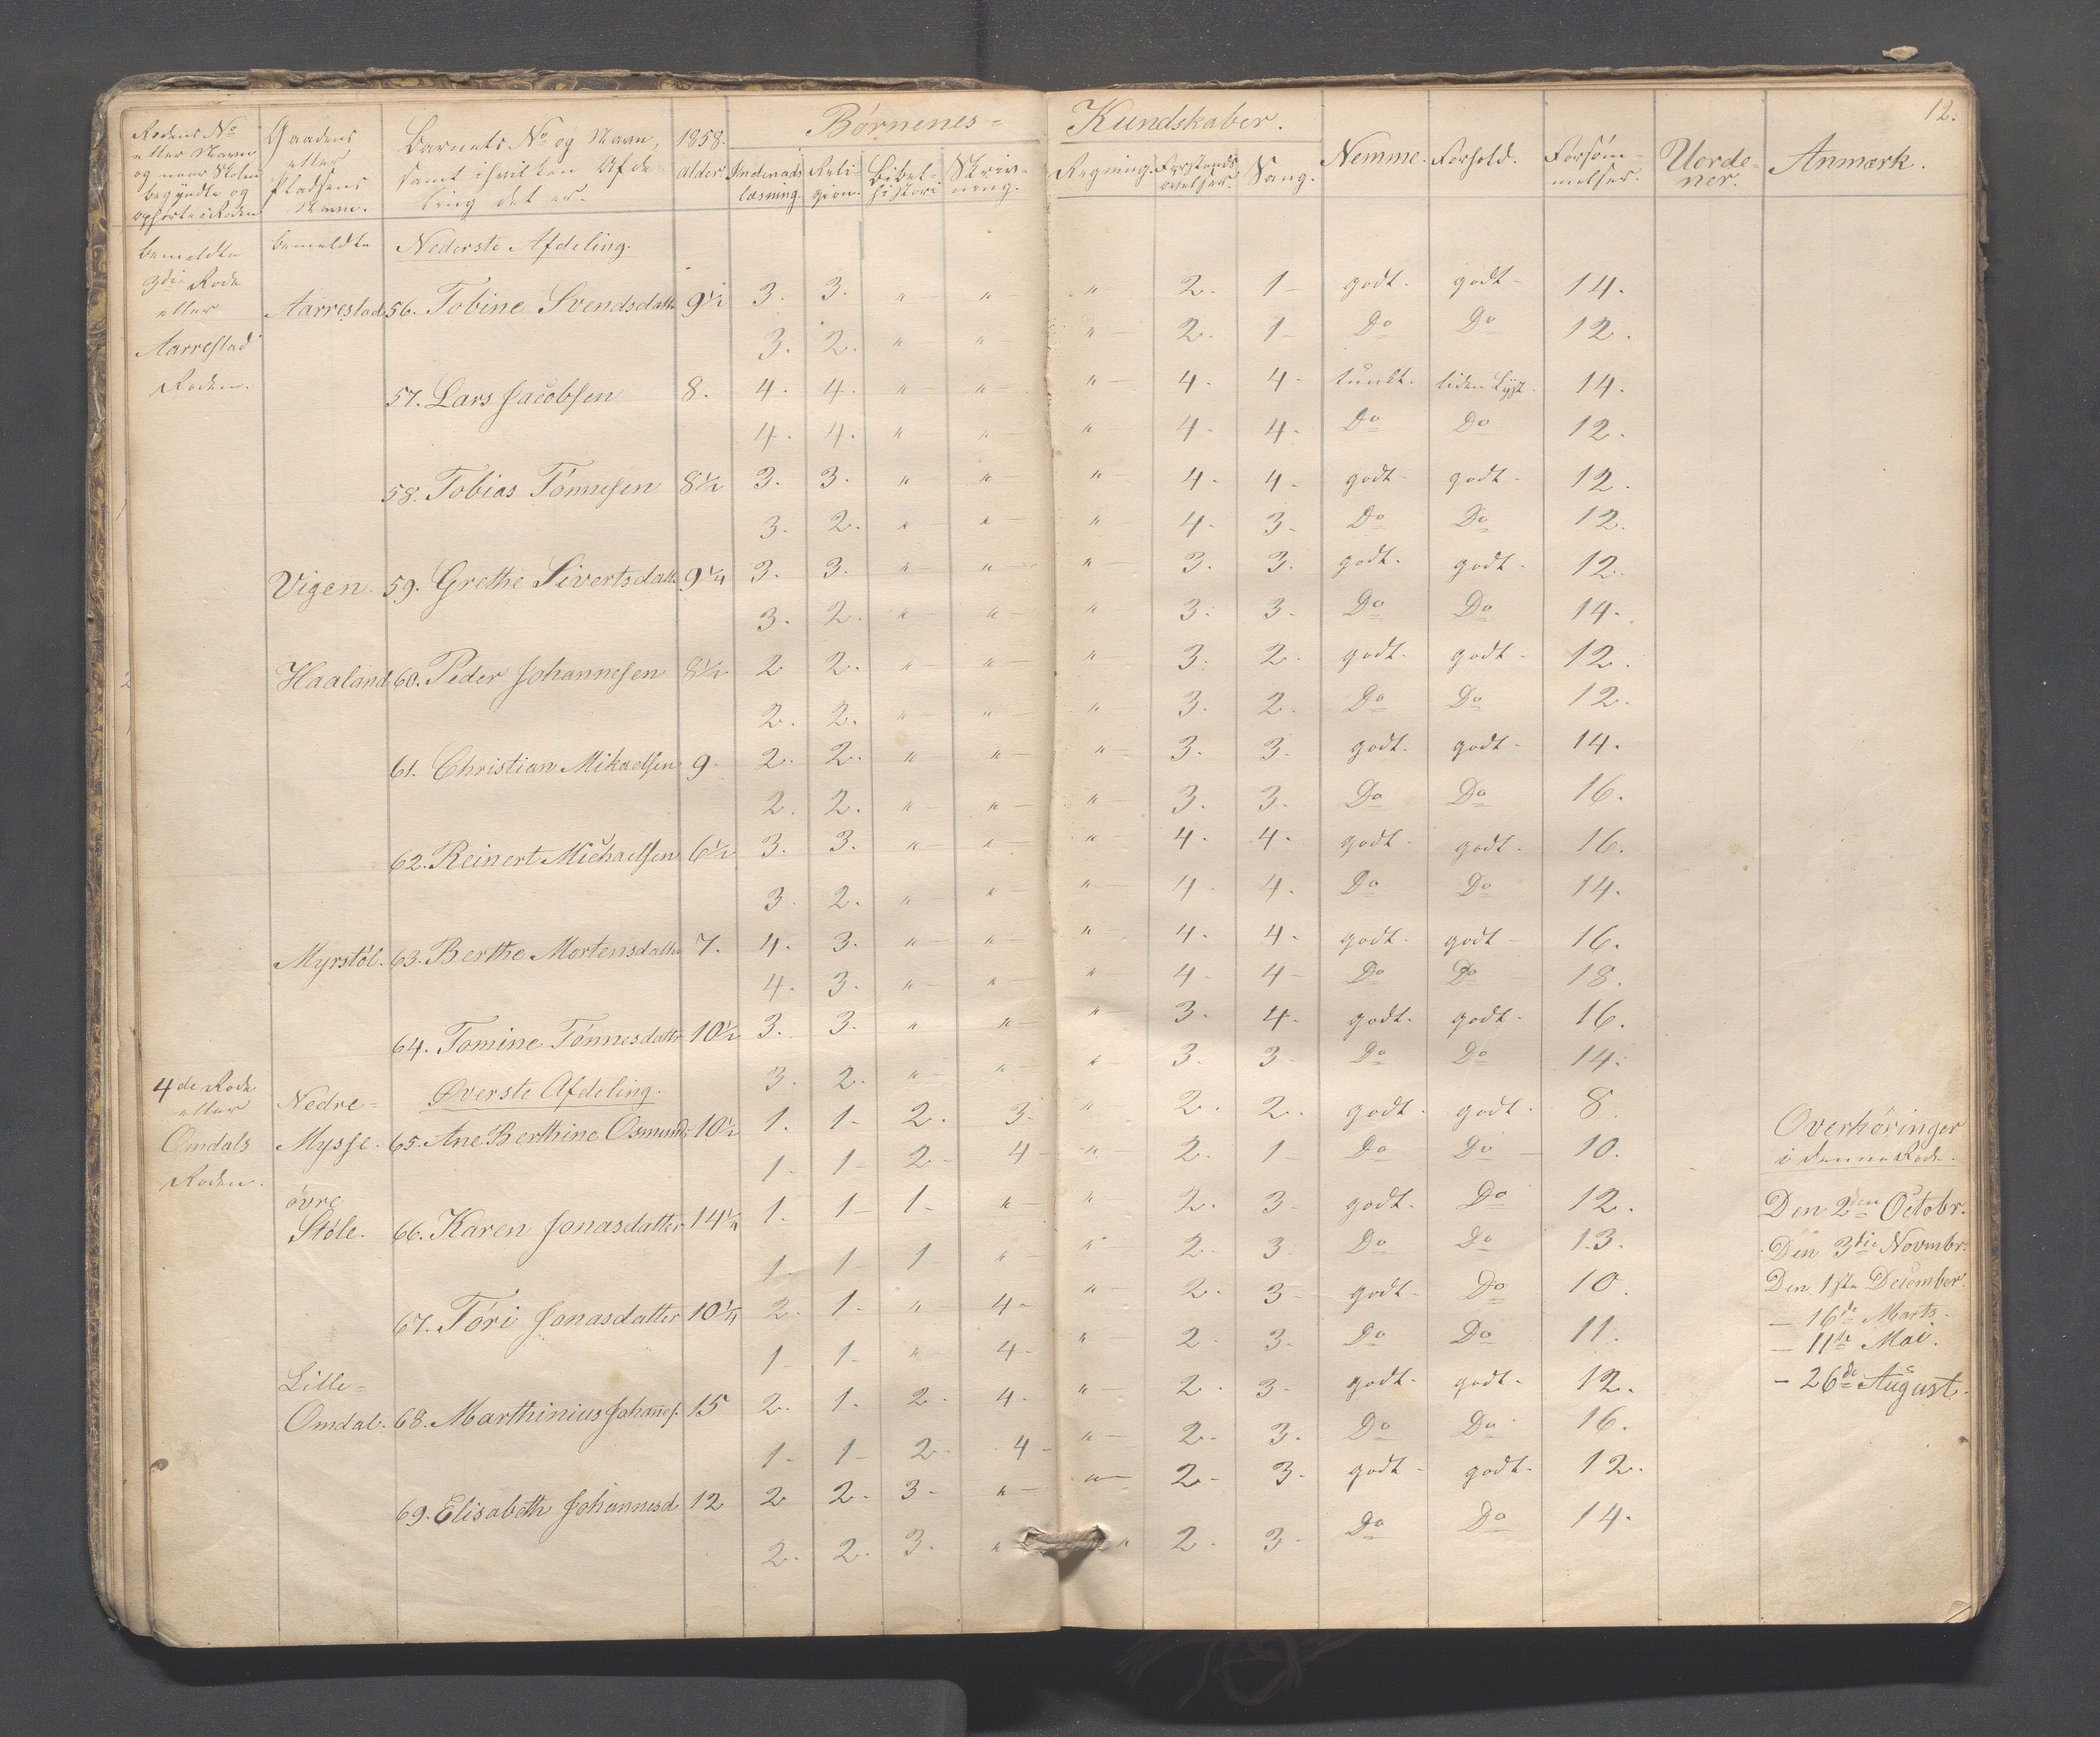 12.
Børnenes = Kundskaber.
Rodens No eller Navn og naar Skolen begyndte og ophørte i Roden
Gaadens eller Pladsens Navn.
Barnets No og Navn, samt i hvilken Afdeling det er.
1858. Alder.
Indenadslæsning. Religion. Bibelhistori Skrivning. Regning. Forstandsøvelser. Sang. Nemme. Forhold. Forsømmelser. Uordener. Anmærk.
bemeldte 3die Rode eller Aarrestad Roden.
bemeldte Nederste Afdeling.
Aarrestad 56. Tobine Svendsdatte 9½ 3. 3. " " " 2. 1 godt. godt 14.
3. 2. " " " 2. 1 Do Do 12.
57. Lars Jacobsen 8. 4. 4. " " " 4. 4. tungt. liden Lyst 14.
4. 4. " " " 4. 4. Do Do 12.
58. Tobias Tønnesen 8½ 3. 3. " " " 4. 4. godt godt 12.
3. 2. " " " 4. 3. Do Do 12.
Vigen. 59. Grethe Sivertsdatte 9¼ 3. 3. " " " 3. 3. godt. godt 12.
3. 2. " " " 3. 3. Do Do 14.
Haaland 60. Peder Johannesen 8½ 2 2. " " " 3. 2. godt. godt 12.
2. 2. " " " 3. 2. Do Do 12.
61. Christian Mikaelsen 9. 2. 2. " " " 3. 3. godt. godt 14.
2. 2. " " " 3. 3. Do Do 16.
62. Reinert Michaelsen 6½ 3. 3. " " " 4. 4. godt. godt. 16.
3. 2. " " " 4. 4. Do Do 14.
Myrstøl. 63. Berthe Mortensdatte 7. 4. 3. " " " 4. 4. godt. godt 16.
4. 3. " " " 4. 4 Do Do 18.
64. Tomine Tønnesdatte 10½ 3. 3. " " " 3. 4. godt. godt. 16.
3. 2. " " " 3. 3. Do Do 14.
4de Rode eller Omdals Roden.
Øverste Afdeling.
Nedre = Mysse. 65. Ane Berthine Osmunds 10½ 1. 1. 2. 3. " 2. 2. godt. godt. 8.
1 1 2 4 " 2. 1 Do Do 10.
øvre Støle. 66. Karen Jonasdatter 14¼ 1. 1 1. " " 2. 3. godt. Do 12.
1 1 1 " " 2. 3 Do Do 13.
67. Tøri Jonasdatter 10¼ 2. 1 " 4. " 2. 3. godt. Do 10.
1 1. " 4. " 2. 3. Do Do 11.
Lille = Omdal. 68. Marthinius Johannes. 15 2. 1. 2. 4. " 2. 3. godt. godt. 12.
1 1 2. 4 " 2. 3. Do Do 16.
69. Elisabeth Johannesd 12 2 2. 3. " " 2 3. godt godt. 12.
2. 2. 3. " " 2. 3 Do Do 14.
Overhøringer
i denne Rode.
Den 2den Octobr.
Den 3die Novmbr.
Den 1ste December
— 16de Marts.
— 11te Mai.
— 26de August.